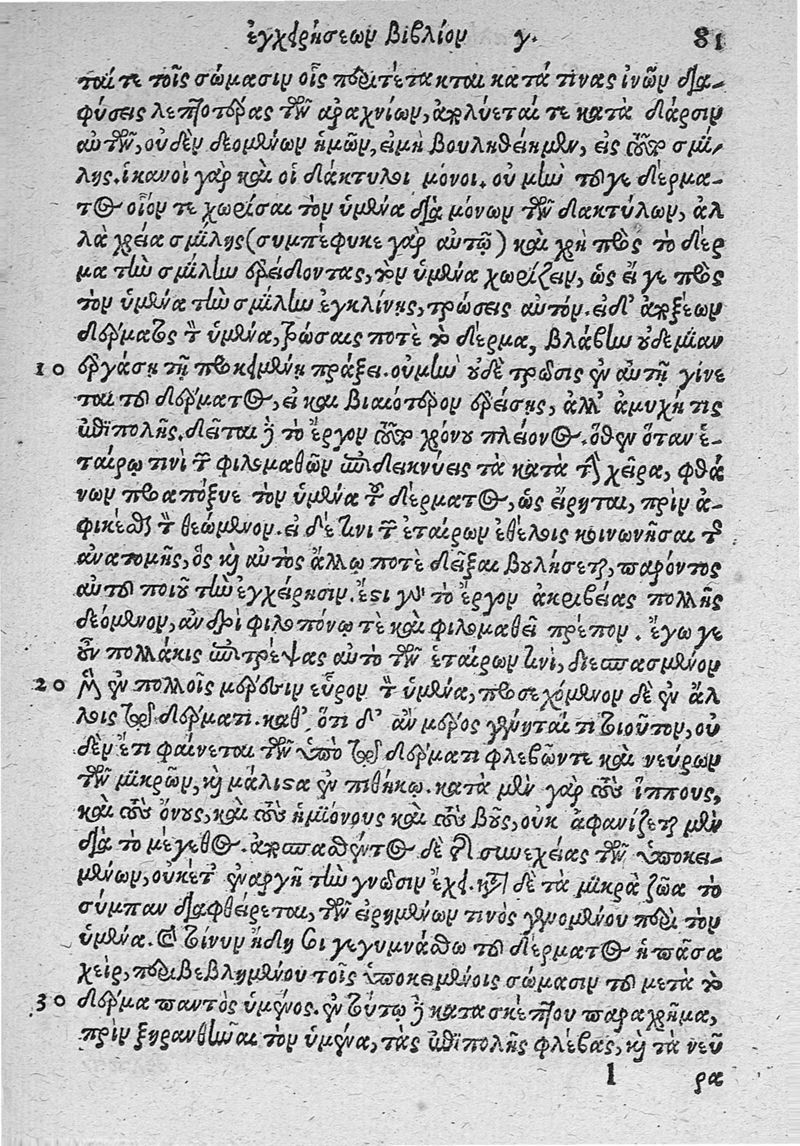 ἐγχειρήσεων Βιβλίον γ. 81
ταί τε τοῖς σώμασιν οἷς περιτέτακται κατά τινας ἰνῶν δια-
φύσεις λεπτοτέρας τῶν ἀραχνίων, ἐκλύεταί τε κατὰ διάρσιν
αὐτῶν, οὐδὲν δεομένων ἡμῶν, εἰ μὴ βουληθείημεν, εἰς τοῦτο σμί-
λης. ἱκανοὶ γὰρ καὶ οἱ δάκτυλοι μόνοι. οὐ μὴν τοῦ γε δέρμα-
τος οἷόν τε χωρίσαι τὸν ὑμένα διὰ μόνων τῶν δακτύλων, ἀλ
λὰ χρεία σμίλης (συμπέφυκε γὰρ αὐτῷ) καὶ χρὴ πρὸς τὸ δέρ
μα τὴν σμίλην ἐρείδοντας, τὸν ὑμένα χωρίζειν, ὡς εἴ γε πρὸς
τὸν ὑμένα τὴν σμίλην ἐγκλίνῃς, τρώσεις αὐτόν. εἰ δ' ἀποξέων
δέρματος τὸν ὑμένα, τρώσαις ποτὲ τὸ δέρμα, βλάβην οὐδεμίαν
10 ἐργάσῃ τῇ προκειμένῃ πράξει. οὐ μὴν οὐδὲ τρῶσις ἐν αὐτῇ γίνε
ται τοῦ δέρματος, εἰ καὶ βιαιότερον ἐρείσῃς, ἀλλ' ἀμυχή τις
ἐπιπολῆς. δεῖται δὲ τὸ ἔργον τοῦτο χρόνου πλείονος. ὅθεν ὅταν ἑ-
ταίρῳ τινὶ τῶν φιλομαθῶν ἐπιδεικνύεις τὰ κατὰ τὴν χεῖρα, φθά
νων προαπόξυε τὸν ὑμένα τοῦ δέρματος, ὡς εἴρηται, πρὶν ἀ-
φικέσθαι τὸν θεώμενον. εἰ δέ τινι τῶν ἑταίρων ἐθέλοις κοινωνῆσαι τῆς
ἀνατομῆς, ὃς καὶ αὐτὸς ἄλλῳ ποτὲ δεῖξαι βουλήσεται, παρόντος
αὐτοῦ ποιοῦ τὴν ἐγχείρησιν. ἔστι γὰρ τὸ ἔργον ἀκριβείας πολλῆς
δεόμενον, ἀνδρὶ φιλοπόνῳ τὲ καὶ φιλομαθεῖ πρέπον. ἔγωγε
οὖν πολλάκις ἐπιτρέψας αὐτὸ τῶν ἑταίρων τινὶ, διεσπασμένον
20 μὲν ἐν πολλοῖς μέρεσιν εὗρον τὸν ὑμένα, προσεχόμενον δὲ ἐν ἄλ
λοις τῷ δέρματι. καθ' ὅτι δ' ἂν μέρος γένηταί τι τοιοῦτον, οὐ
δὲν ἔτι φαίνεται τῶν ὑπὸ τῷ δέρματι φλεβῶν τε καὶ νεύρων
τῶν μικρῶν, καὶ μάλιστα ἐν πιθήκῳ. κατὰ μὲν γὰρ τοὺς ἵππους,
καὶ τοὺς ὄνους, καὶ τοὺς ἡμιόνους καὶ τοὺς βοῦς, οὐκ ἀφανίζεται μὲν
διὰ τὸ μέγεθος. ἀποσπασθέντος δὲ τῆς συνεχείας τῶν ὑποκει-
μένων, οὐκέτ' ἐναργῆ τὴν γνῶσιν ἔχει. κατὰ δὲ τὰ μικρὰ ζῶα τὸ
σύμπαν διαφθείρεται, τῶν εἰρημένων τινὸς γενομένου περὶ τὸν
ὑμένα. καὶ τοίνυν ἤδη σοι γεγυμνάσθω τοῦ δέρματος ἡ πᾶσα
χεὶρ, περιβεβλημένου τοῖς ὑποκειμένοις σώμασιν τοῦ μετὰ τὸ
30 δέρμα παντὸς ὑμένος. ἐν τούτῳ δὲ κατασκέπτου παραχρῆμα,
πρὶν ξηρανθῆναι τὸν ὑμένα, τὰς ἐπιπολῆς φλέβας, καὶ τὰ νεῦ
l ρα